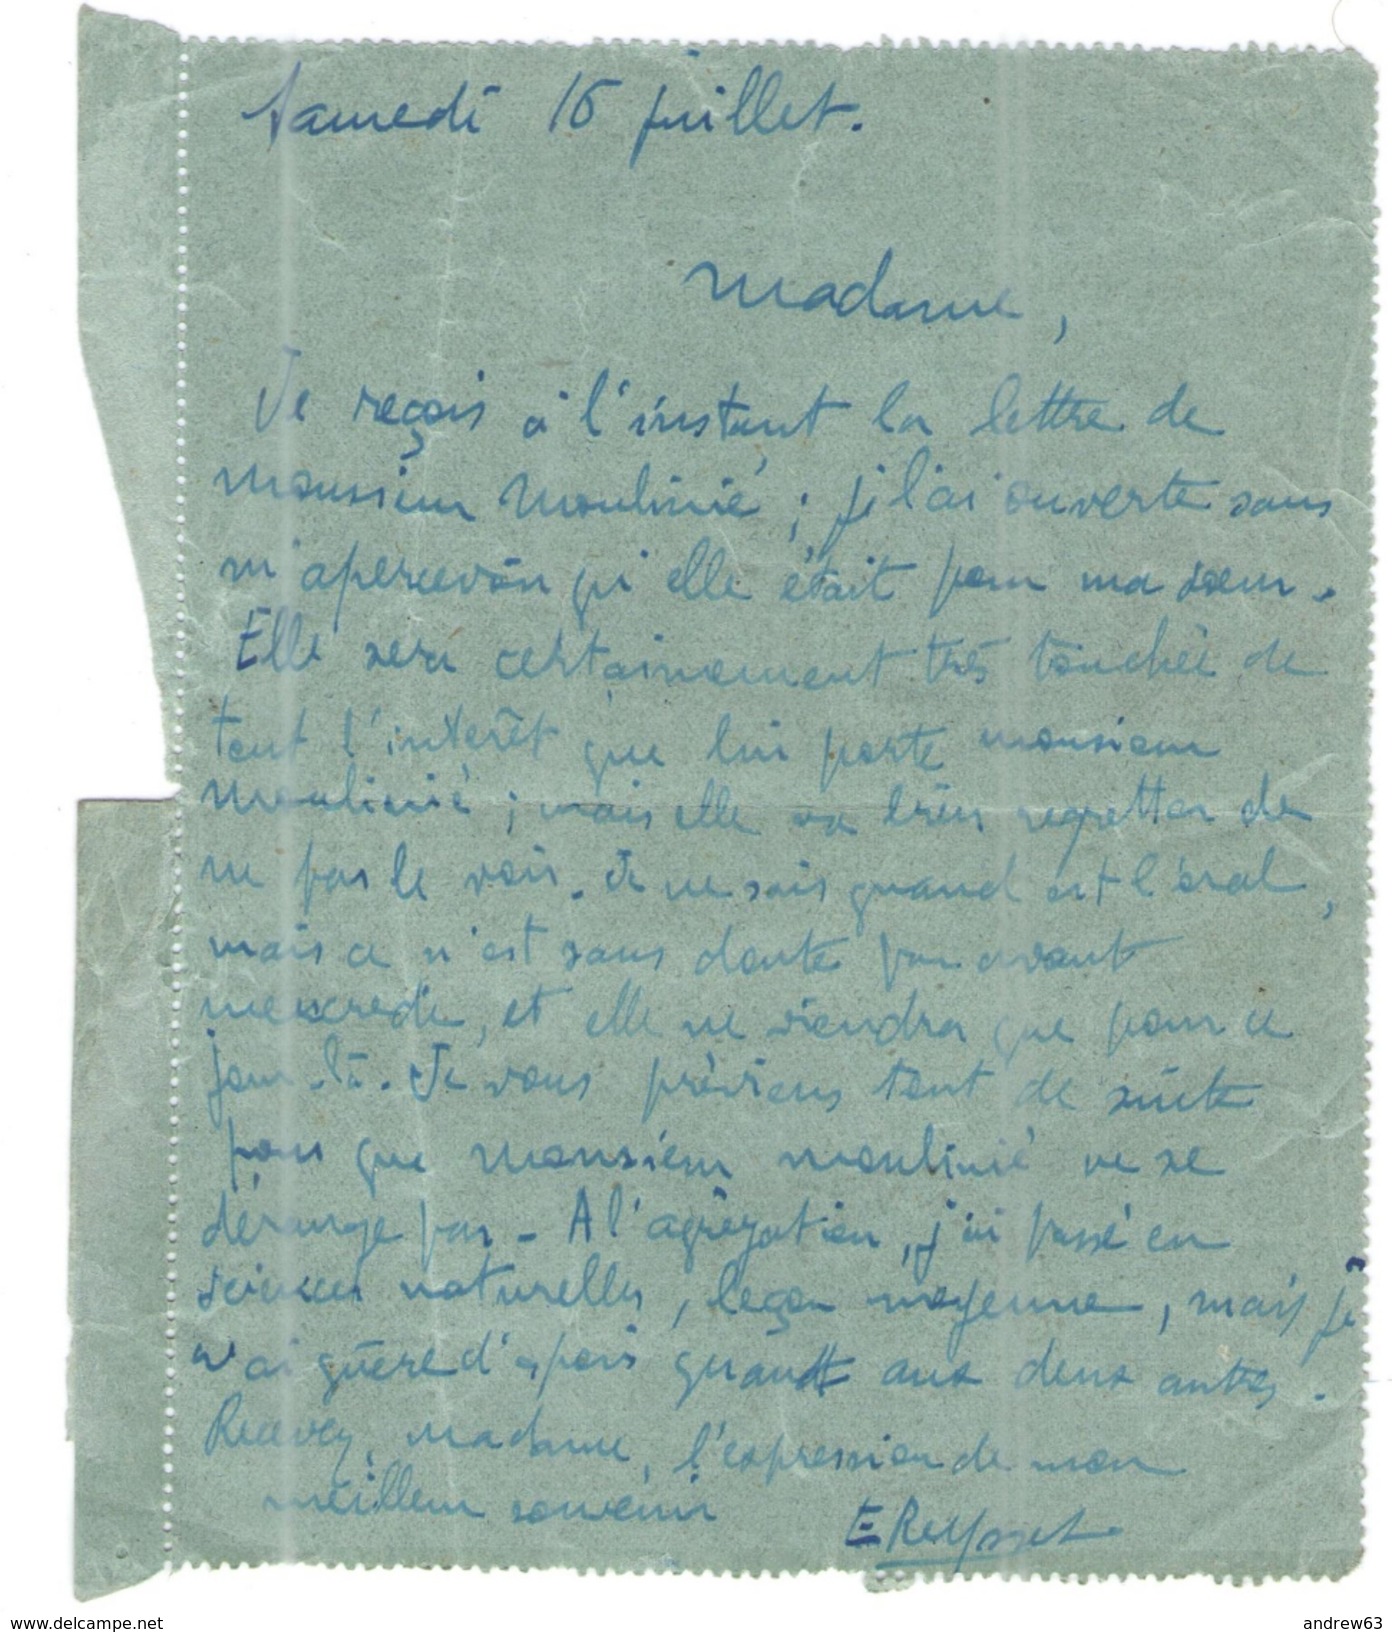 Samedi 16 juillet.
Madame,
Je reçois à l'instant la lettre de
monsieur Moulinié ; je l'ai ouverte sans
m'apercevoir qu'elle était pour ma soeur.
Elle sera certainement très touchée de
tout l'intérêt que lui porte monsieur
Moulinié ; mais elle va bien regretter de
ne pas le voir. Je ne sais quand est l'oral,
mais ce n'est sans doute pas avant
mercredi, et elle ne viendra que pour ce
jour-là. Je vous préviens tout de suite
pour que monsieur Moulinié ne se
dérange pas - A l'agrégation, j'ai passé en
sciences naturelles, leçon moyenne, mais je
n'ai guère d'espoir quant aux deux autres.
Recevez, madame, l'expression de mon
meilleur souvenir
E Reysset
delcampe.net
andrew63